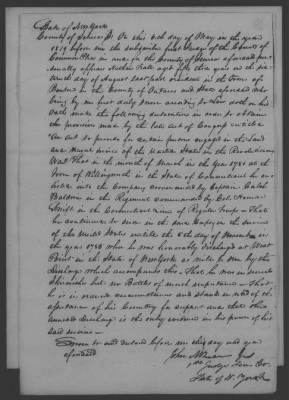 State of New York
County of Seneca Ss. On this 6th day of May in the year
1819 before me the subscriber first Judge of the Court of
Common Pleas in and for the County of Seneca aforesaid per-
sonally appears Hall aged fifty three years on the six-
teenth day of August last past resident in the Town of
in the County of Ontario and State aforesaid who
being by me first duly sworn according to Law doth on his
oath make the following declaration in order to obtain
the provision made by the late act of Congress entitled
"an act to provide for certain persons engaged in the Land
and Naval service of the United States in the Revolutionary
War" That in the month of March in the year 1781 at the
Town of Killingworth in the State of Connecticut he en-
listed into the Company commanded by Captain Caleb
Baldwin in the Regiment commanded by Col. Heman
Swift in the Connecticut Line of Regular Troops. That
he continued to serve in the said Corps in the service
of the United States untill the 8th day of November in
the year 1783 when he was honorably discharged at West
Point in the State of New York as will be seen by the
discharge which accompanies this. That he was in several
Skirmishes but no Battles of much importance. That
he is in reduced circumstances and stands in need of the
assistance of his Country for support and that this
annexed discharge is the only evidence in his power of his
said service.
Sworn to and declared before me this day and year
aforesaid
John
Judge Seneca Co.
State of N. York